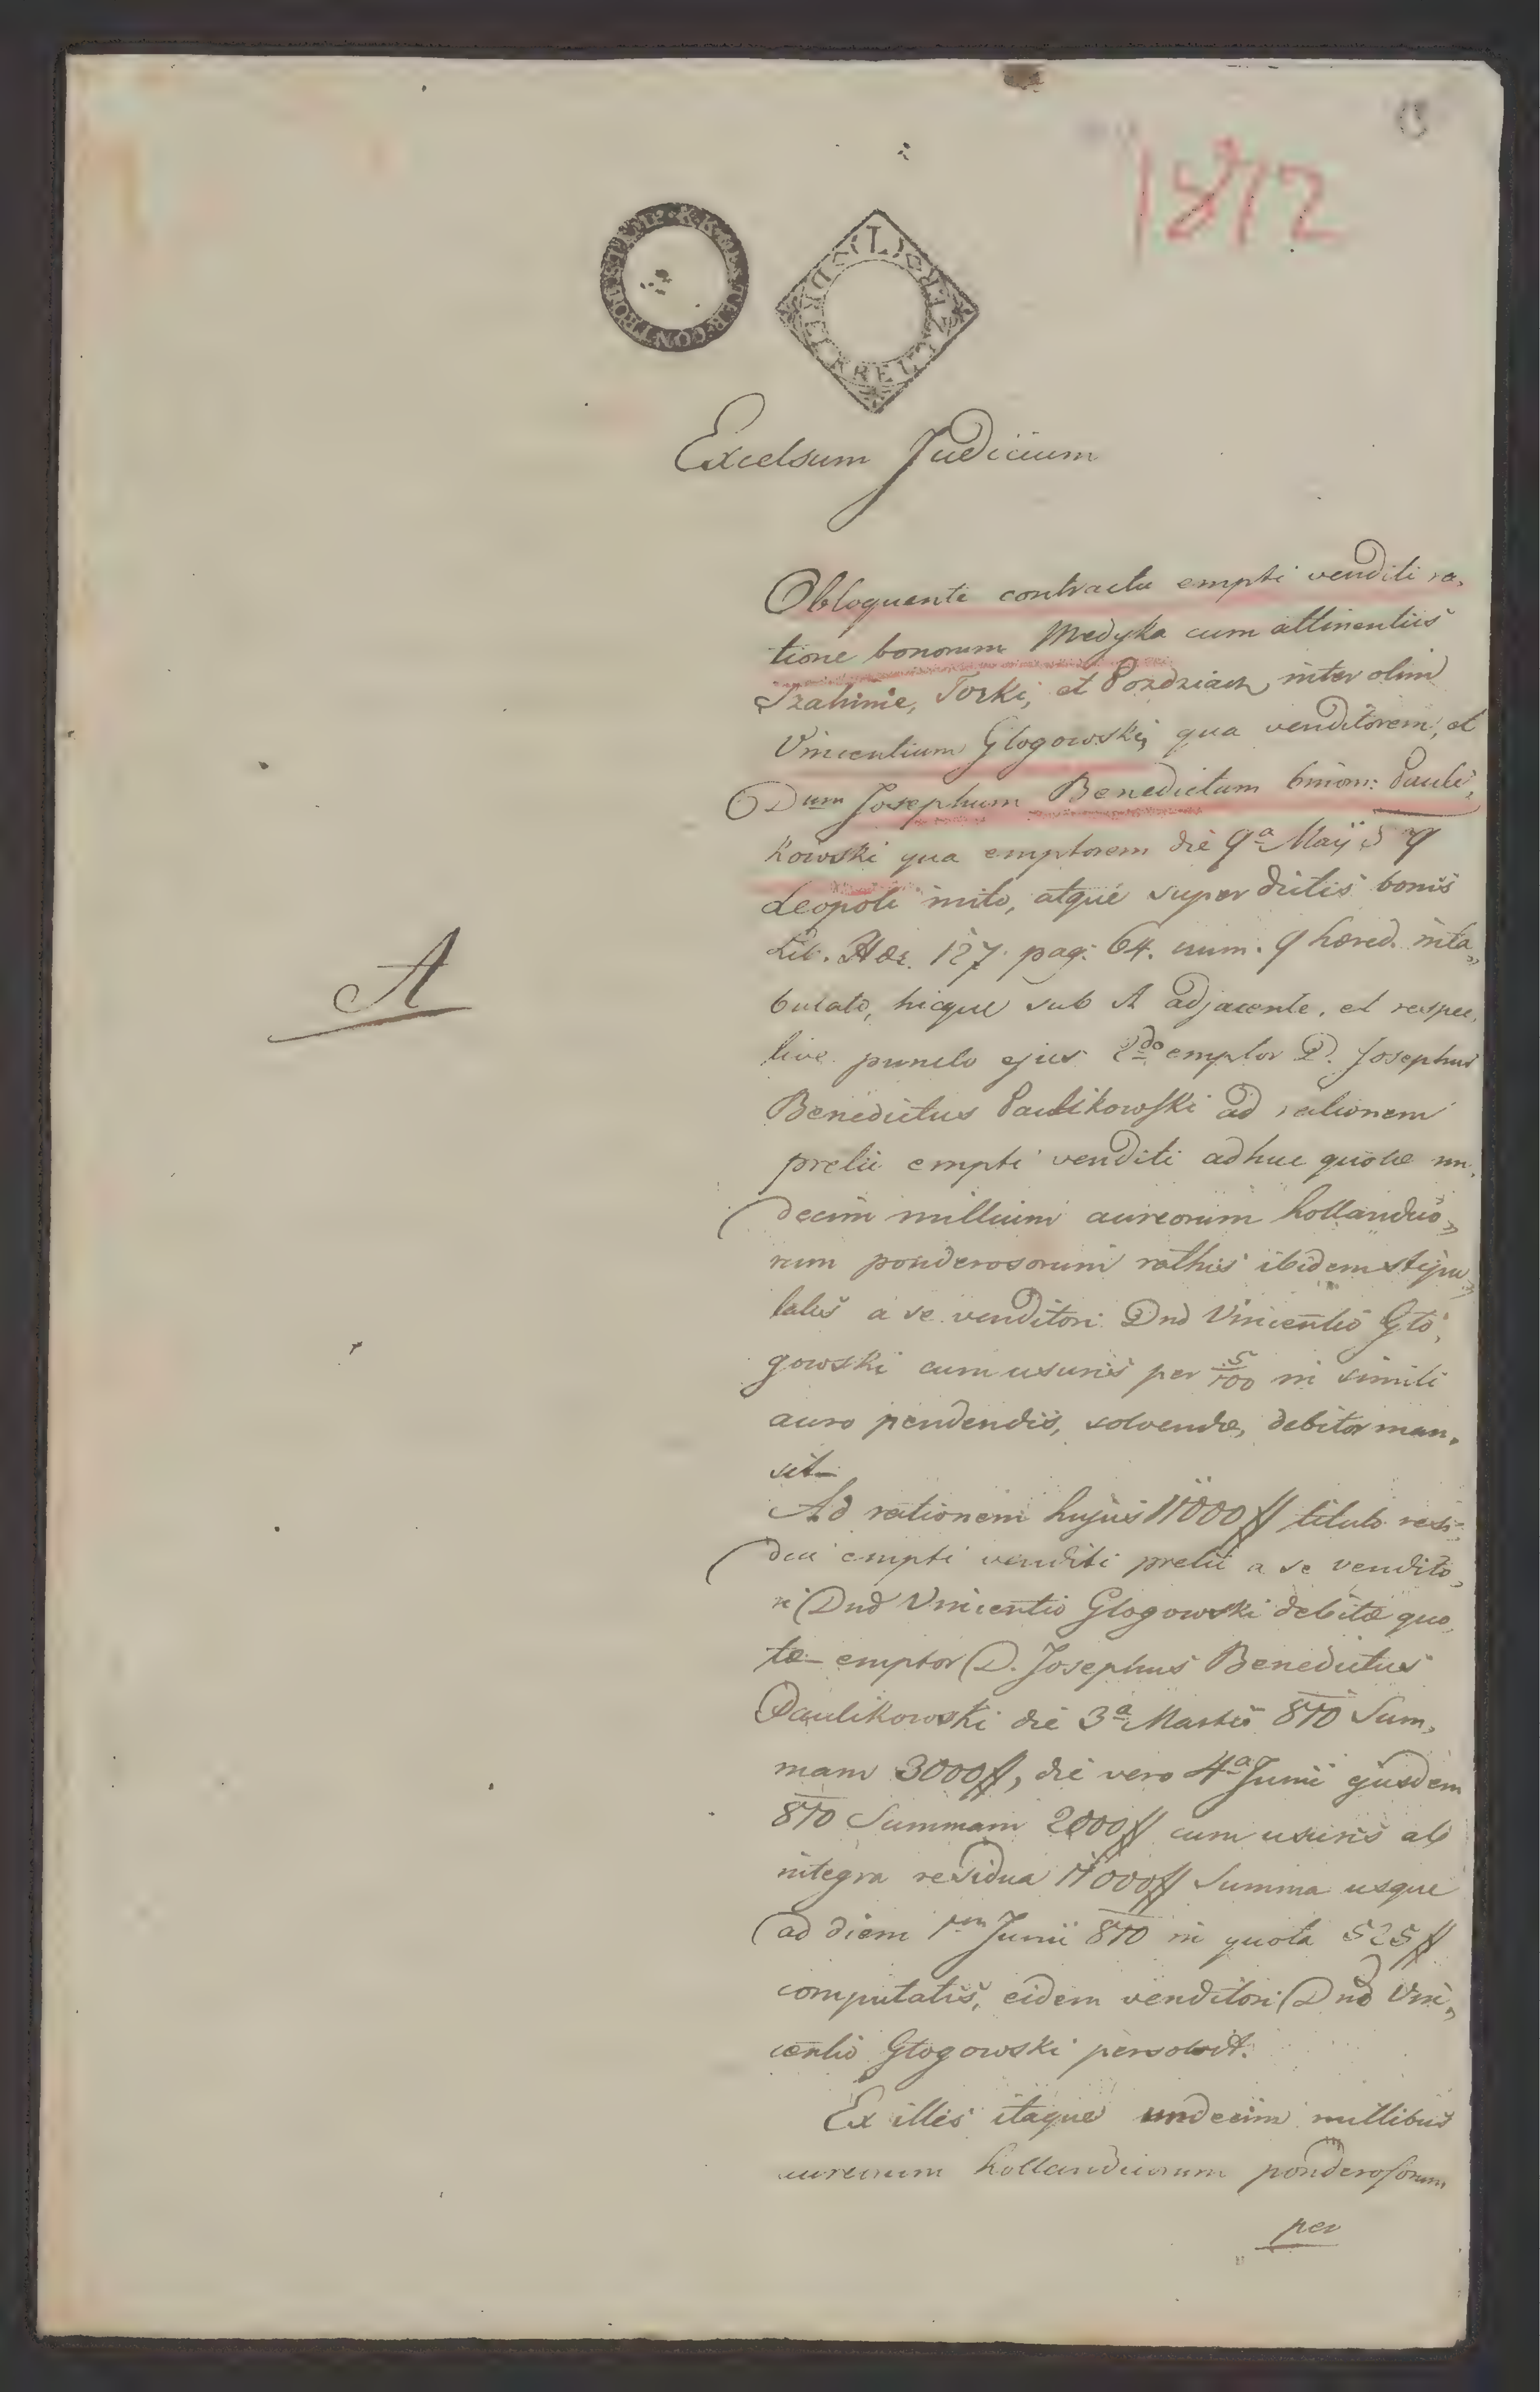 1872
CONTROL STAMP. K.K.
(L)
Excelsum Judicium
Obloquente contractu empti venditi ra,
tione bonorum Medyka cum attinentiis
Szahinie, Torki, et Pozdziacz, inter olim
Vincentium Glogowski, qua venditorem, et
Dum Josephum Benedictum binom: Pauli,
kowski qua emptorem die 9a Maij
Leopoli inito, atque super dictis bonis
Lib. Hær. 127. pag: 64. num. 9 hæred. inta„
bulato, hicque sub A adjacente, et respec,
tive puncto ejus 2do emptor D. Josephus
A
Benedictus Paulikowski ad rationem
pretii empti venditi adhuc quotæ un,
decim millium aureorum hollandico„
rum ponderosorum rathis ibidem stipu„
latis a se venditori Dno Vincentio Glo,
gowski cum usuris per 5/100 in simili
auro pendendis, solvendæ, debitor man,
sit—
Ad rationem hujus 11000 ff titulo resi,
dui empti venditi pretii a se vendito,
ri Dno Vincentio Glogowski debitæ quo,
tæ— emptor D. Josephus Benedictus
Paulikowski die 3a Martii 810 Sum,
mam 3000 ff, die vero 4a Junii ejusdem
810 Summam 2000 ff cum usuris ab
integra residua 11000 ff Summa usque
ad diem 1am Junii 810 in quota 525 ff
computatis, eidem venditori Dno Vin„
centio Glogowski persolvit.
Ex illis itaque undecim millibus
aureorum hollandicorum ponderosorum
per